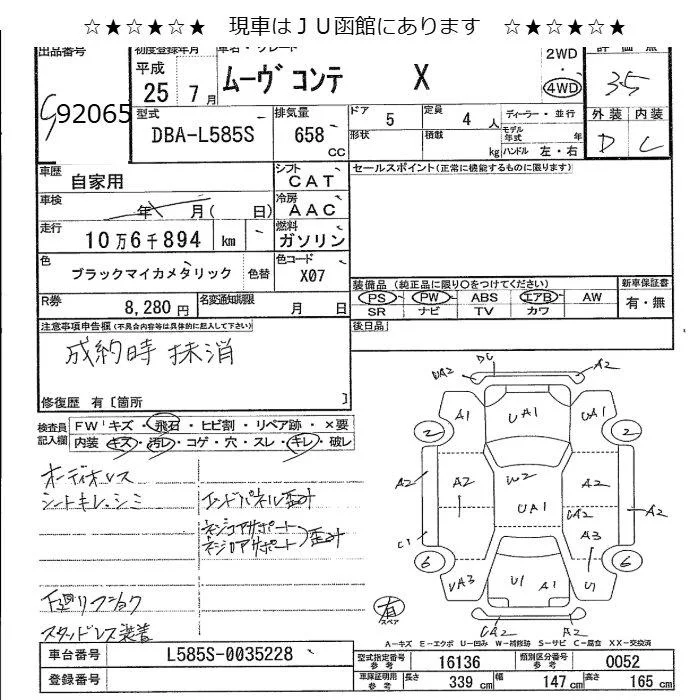 ☆★☆★☆★ 現車はＪＵ函館にあります ☆★☆★☆★
出品番号 初度登録年月 車名・グレード 2WD 評価点
平成 25 7 月 ムーヴ コンテ X ・ 4WD 3.5
92065 型式 排気量 ドア 5 定員 4 人 ディーラー・並行 外装 内装
DBA-L585S 658 CC 形状 積載 kg モデル年式 年 D C
ハンドル 左・右
車歴 自家用 シフト CAT セールスポイント(正常に機能するものに限ります)
車検 年 月( 日) 冷房 AAC
走行 10万6千894 km 燃料 ガソリン
色 ブラックマイカメタリック 色替 色コード X07 装備品 (純正品に限り○をつけてください) 新車保証書
PS PW ABS エアB AW 有・無
R券 8,280円 名変通知期限 月 日 SR ナビ TV カワ
注意事項申告欄(不具合内容等は具体的に記入して下さい) 後日品
成約時 抹消
修復歴 有〔箇所 〕
検査員記入欄 FW キズ・飛石・ヒビ割・リペア跡・×要
内装 キズ・汚レ・コゲ・穴・スレ・キレ・破レ
オーディオレス
シートキレ、シミ エンドパネル歪み
下廻りフショク
スタッドレス装着
DC
UA2 A2
A1 UA1 UA1
2 2
A2 A2 W2 A2 A2
UA1 UA2
C1 A3
6 6
UA3 U1 A1 U1
UA2 A2
有 スペア
A－キズ E－エクボ U－凹み W－補修跡 S－サビ C－腐食 XX－交換済
車台番号 L585S-0035228 型式指定番号 参考 16136 類別区分番号 参考 0052
登録番号 車庫証明用 参考 長さ 339 cm 幅 147 cm 高さ 165 cm